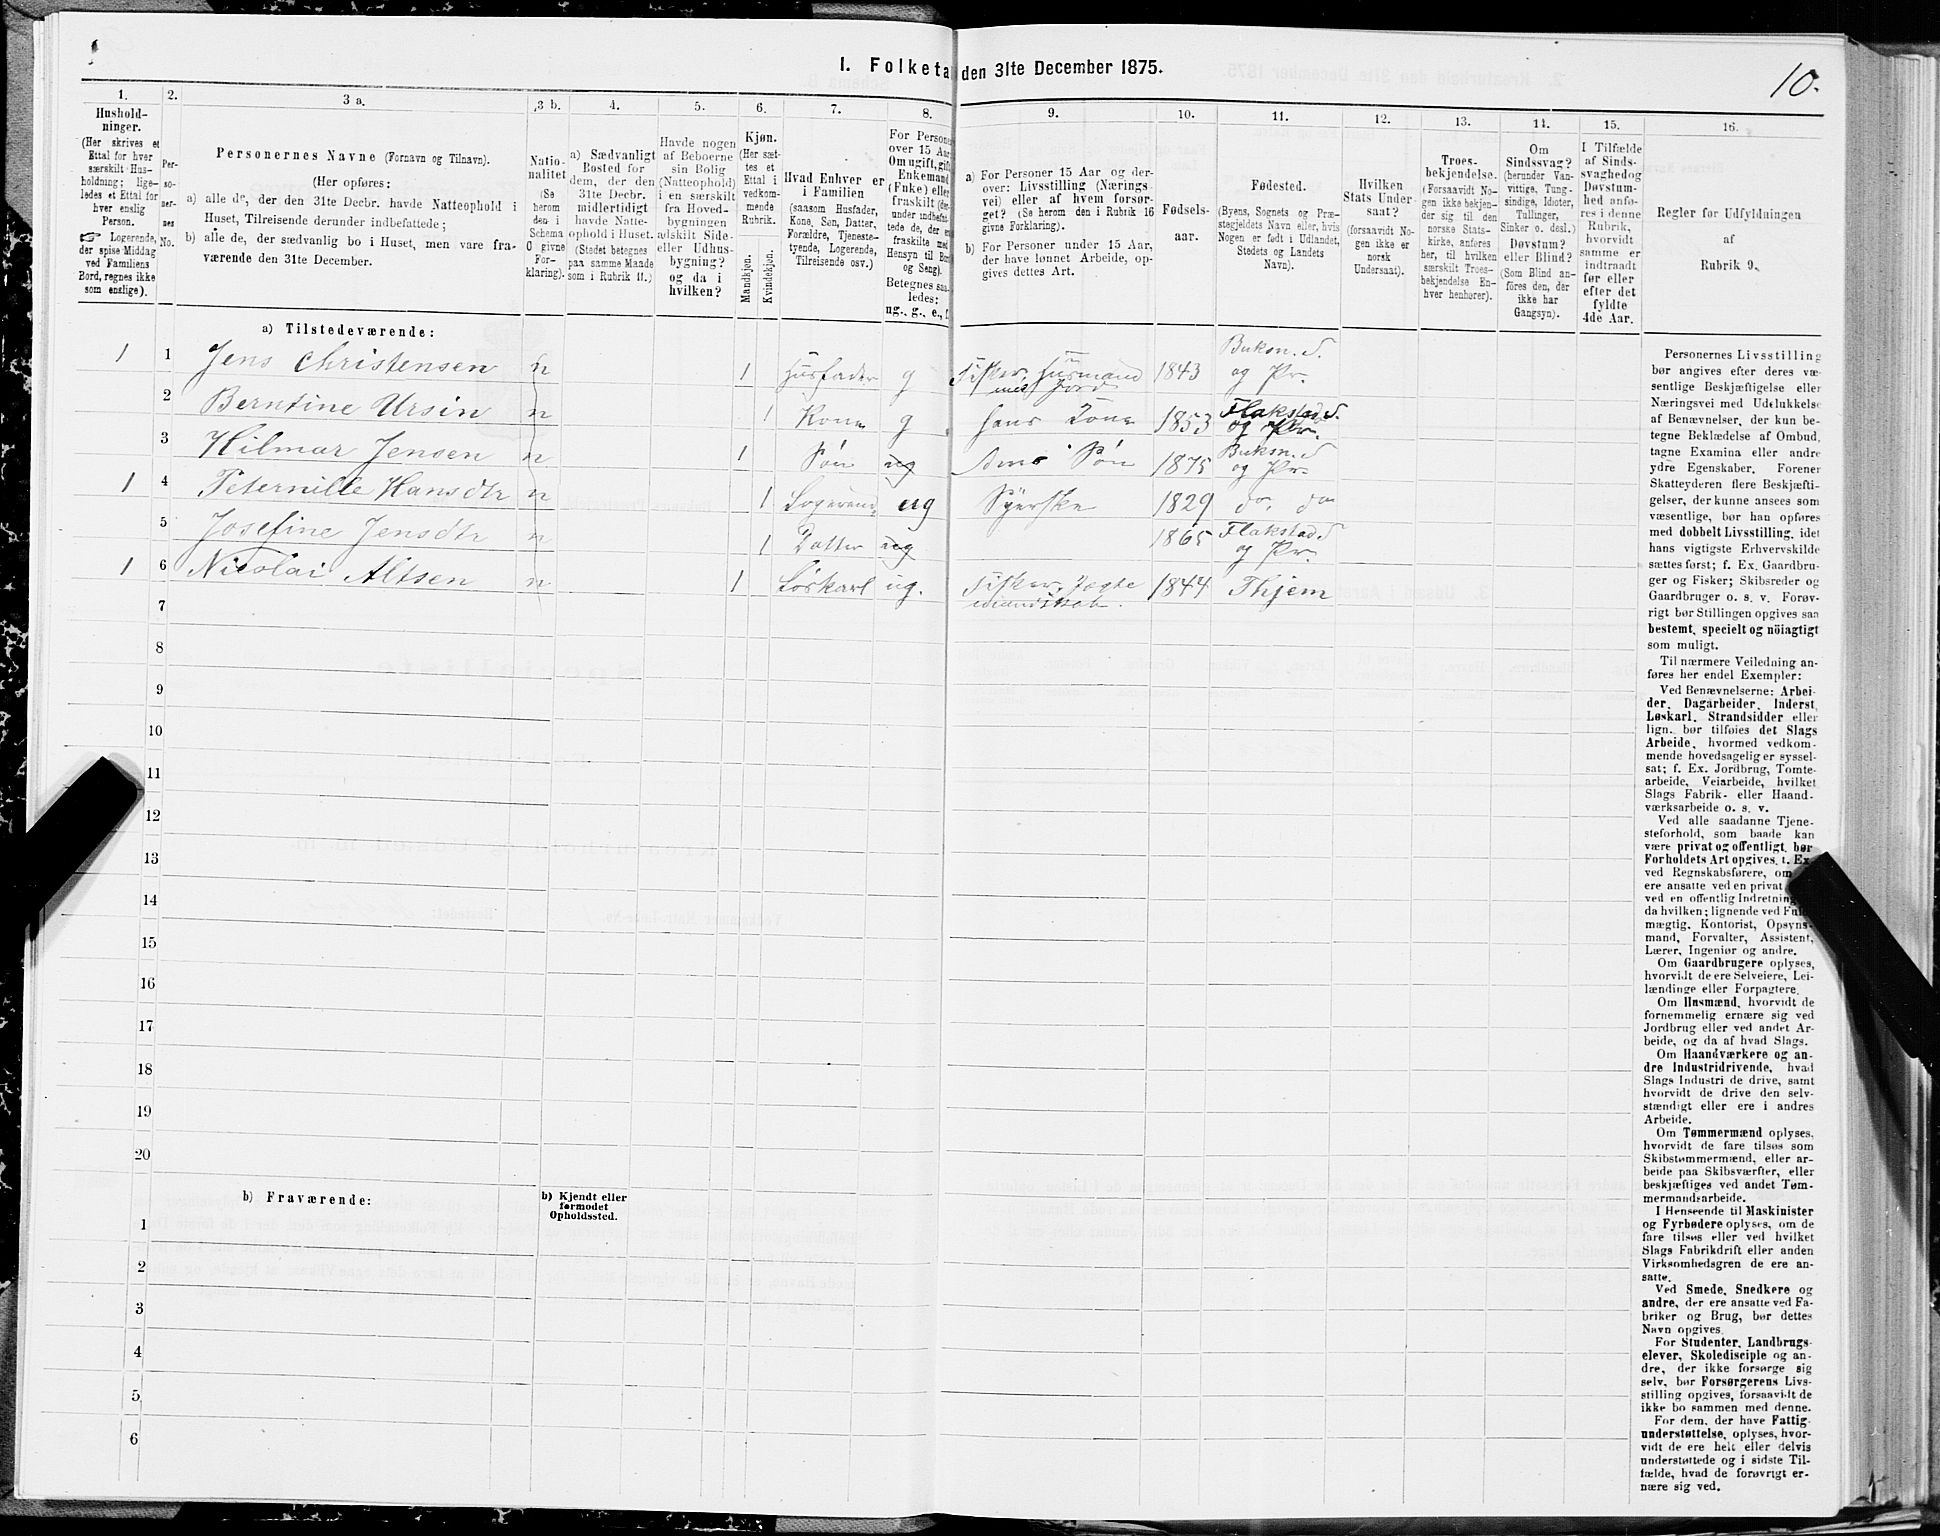 I. Folketa den 31te December 1875.
10.
1.
Hushold-
ninger.
(Her skrives et
Ettal for hver
særskilt Hus-
holdning; lige-
ledes et Ettal for
hver enslig
Person.
☞ Logerende,
der spise Middag
ved Familiens
Bord, regnes ikke
som enslige).
2.
Per-
so-
ner-
nes
No.
3 a.
Personernes Navne (Fornavn og Tilnavn).
(Her opføres:
a) alle de, der den 31te Decbr. havde Natteophold i
Huset, Tilreisende derunder indbefattede;
b) alle de, der sædvanlig bo i Huset, men vare fra-
værende den 31te December.
3 b.
Natio-
nalitet
(Se
herom
den i
Schema
O givne
For-
klaring).
4.
a) Sædvanligt
Bosted for
dem, der den
31te Decbr.
midlertidigt
havde Natte-
ophold i Huset.
(Stedet betegnes
paa samme Maade
som i Rubrik 11.)
5.
Havde nogen
af Beboerne
sin Bolig
(Natteophold)
i en særskilt
fra Hoved-
bygningen
adskilt Side-
eller Udhus-
bygning?
og da i
hvilken?
6.
Kjøn.
(Her sæt-
tes et
Ettal i
vedkom-
mende
Rubrik.
Mandkjøn.
Kvindekjøn.
7.
Hvad Enhver er
i Familien
(saasom Husfader,
Kone, Søn, Datter,
Forældre, Tjeneste-
tyende, Logerende,
Tilreisende osv.)
8.
For Persone
over 15 Aar
Om ugift, gift,
Enkemand
(Enke) eller
fraskilt (der-
under indbefat-
tede de, der er
fraskilte med
Hensyn til Bord
og Seng).
Betegnes saa-
ledes:
ug., g., e., f.
9.
a) For Personer 15 Aar og der-
over: Livsstilling (Nærings-
vei) eller af hvem forsør-
get? (Se herom den i Rubrik 16
givne Forklaring).
b) For Personer under 15 Aar,
der have lønnet Arbeide, op-
gives dettes Art.
10.
Fødsels-
aar.
11.
Fødested.
(Byens, Sognets og Præ-
stegjeldets Navn eller, hvis
Nogen er født i Udlandet,
Stedets og Landets
Navn).
12.
Hvilken
Stats Under-
saat?
(forsaavidt No-
gen ikke er
norsk
Undersaat).
13.
Troes-
bekjendelse.
(Forsaavidt No-
gen ikke bekjen-
der sig til den
norske Stats-
kirke, anføres
her, til hvilken
særskilt Troes-
bekjendelse En-
hver henhører).
14.
Om
Sindssvag?
(herunder Van-
vittige, Tung-
sindige, Idioter,
Tullinger,
Sinker o. desl.)
Døvstum?
eller Blind?
(Som Blind an-
føres den, der
ikke har
Gangsyn).
15.
I Tilfælde
af Sinds-
svaghed og
Døvstum-
hed anfø-
res i denne
Rubrik,
hvorvidt
samme er
indtraadt
før eller
efter det
fyldte
4de Aar.
16.
Regler for Udfyldningen
af
Rubrik 9.
a) Tilstedeværende:
1 1 Jens Christensen n 1 Husfader g Fisker, Husmand med Jord 1843 Buksn. S. og Pr.
2 Berntine Ursin n 1 Kone g hans Kone 1853 Flakstad S. og Pr.
3 Hilmar Jensen n 1 Søn ug Søn 1875 Buksn. S og Pr.
1 4 Peternille Hansdtr n 1 Logerend. ug Syerske 1829 do. do
5 Josefine Jensdtr n 1 Datter ug 1865 Flakstad S og Pr.
1 6 Nicolai Altsen n 1 Løskarl ug. Fisker, Jagte mandskab. 1844 Thjem
7
8
9
10
11
12
13
14
15
16
17
18
19
20
b) Fraværende:
b) Kjendt eller
formodet
Opholdssted.
1
2
3
4
5
6
Personernes Livsstilling
bør angives efter deres væ-
sentlige Beskjæftigelse eller
Næringsvei med Udelukkelse
af Benævnelser, der kun be-
tegne Beklædelse af Ombud,
tagne Examina eller andre
ydre Egenskaber. Forener
Skatteyderen flere Beskjæfti-
gelser, der kunne ansees som
væsentlige, bør han opføres
med dobbelt Livsstilling, idet
hans vigtigste Erhvervskilde
sættes først; f. Ex. Gaardbru-
ger og Fisker; Skibsreder og
Gaardbruger o. s. v. Forøv-
rigt bør Stillingen opgives saa
bestemt, specielt og nöiagtigt
som muligt.
Til nærmere Veiledning an-
føres her endel Exempler:
Ved Benævnelserne: Arbei-
der, Dagarbeider, Inderst,
Løskarl, Strandsidder eller
lign. bør tilføies det Slags
Arbeide, hvormed vedkom-
mende hovedsagelig er syssel-
sat; f. Ex. Jordbrug, Tomte-
arbeide, Veiarbeide, hvilket
Slags Fabrik- eller Haand-
værksarbeide o. s. v.
Ved alle saadanne Tjene-
steforhold, som baade kan
være privat og offentligt, bør
Forholdets Art opgives, t. Ex.
ved Regnskabsførere, om
ere ansatte ved en privat
ved en offentlig Indretning
da hvilken; lignende ved Fuld-
mægtig, Kontorist, Opsyns-
mand, Forvalter, Assistent,
Lærer, Ingeniør og andre.
Om Gaardbrugere oplyses,
hvorvidt de ere Selveiere, Lei-
lændinge eller Forpagtere.
Om Husmænd, hvorvidt de
fornemmelig ernære sig ved
Jordbrug eller ved andet Ar-
beide, og da af hvad Slags.
Om Haandværkere og an-
dre Industridrivende, hvad
Slags Industri de drive, samt
hvorvidt de drive den selv-
stændigt eller ere i andres
Arbeide.
Om Tømmermænd oplyses,
hvorvidt de fare tilsøs som
Skibstømmermænd, eller ar-
beide paa Skibsværfter, eller
beskjæftiges ved andet Tøm-
mermandsarbeide.
I Henseende til Maskinister
og Fyrbødere oplyses, om de
fare tilsøs eller ved hvilket
Slags Fabrikdrift eller anden
Virksomhedsgren de ere an-
satte.
Ved Smede, Snedkere og
andre, der ere ansatte ved Fa-
briker og Brug, bør dettes
Navn opgives.
For Studenter, Landbrugs-
elever, Skoledisciple og an-
dre, der ikke forsørge sig
selv, bør Forsørgerens Livs-
stilling opgives, forsaavidt de
ikke bo sammen med denne.
For dem, der have Fattig-
understøttelse, oplyses, hvor-
vidt de ere helt eller delvis
understøttede og i sidste Til-
fælde, hvad de forøvrigt er-
nære sig ved.